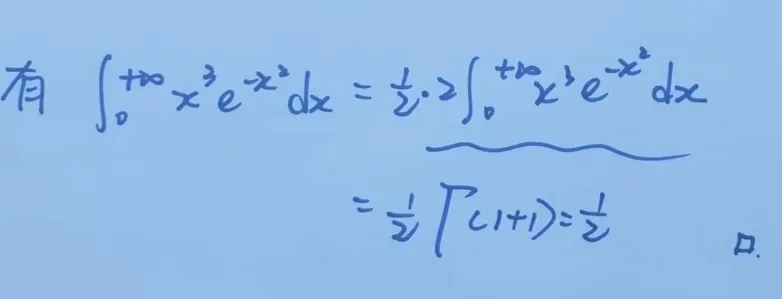 有 ∫₀⁺∞ x³e⁻ˣ²dx = ½·2∫₀⁺∞ x³e⁻ˣ²dx
= ½Γ(1+1)=½ □.